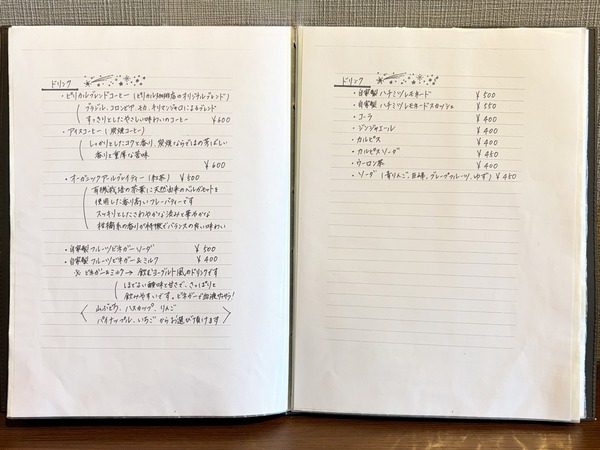 ドリンク
・ピリカルブレンドコーヒー (ピリカル珈琲店のオリジナルブレンド)
ブラジル、コロンビア、モカ、キリマンジャロによるブレンド
すっきりとしたやさしい味わいのコーヒー ¥600
・アイスコーヒー (炭焼コーヒー)
しっかりとしたコクと香り、炭焼ならではの芳ばしい
香りと重厚な苦味
¥600
・オーガニックアールグレイティー (紅茶) ¥500
有機栽培の茶葉に天然由来のベルガモットを
使用した香り高いフレーバーティーです
スッキリとしたさわやかな渋みと華やかな
柑橘系の香りが特徴でバランスの良い味わい
・自家製フルーツビネガーソーダ ¥500
・自家製フルーツビネガー&ミルク ¥400
※ ビネガー&ミルク→飲むヨーグルト風のドリンクです
ほどよい酸味と甘さで、さっぱりと
飲みやすいです。ビネガーで血液サラサラ!
山ぶどう、ハスカップ、りんご
パイナップル、いちご からお選び頂けます
ドリンク
・自家製 ハチミツレモネード ¥500
・自家製 ハチミツレモネードスカッシュ ¥550
・コーラ ¥400
・ジンジャエール ¥400
・カルピス ¥400
・カルピスソーダ ¥450
・ウーロン茶 ¥400
・ソーダ (青りんご、巨峰、グレープフルーツ、ゆず) ¥450